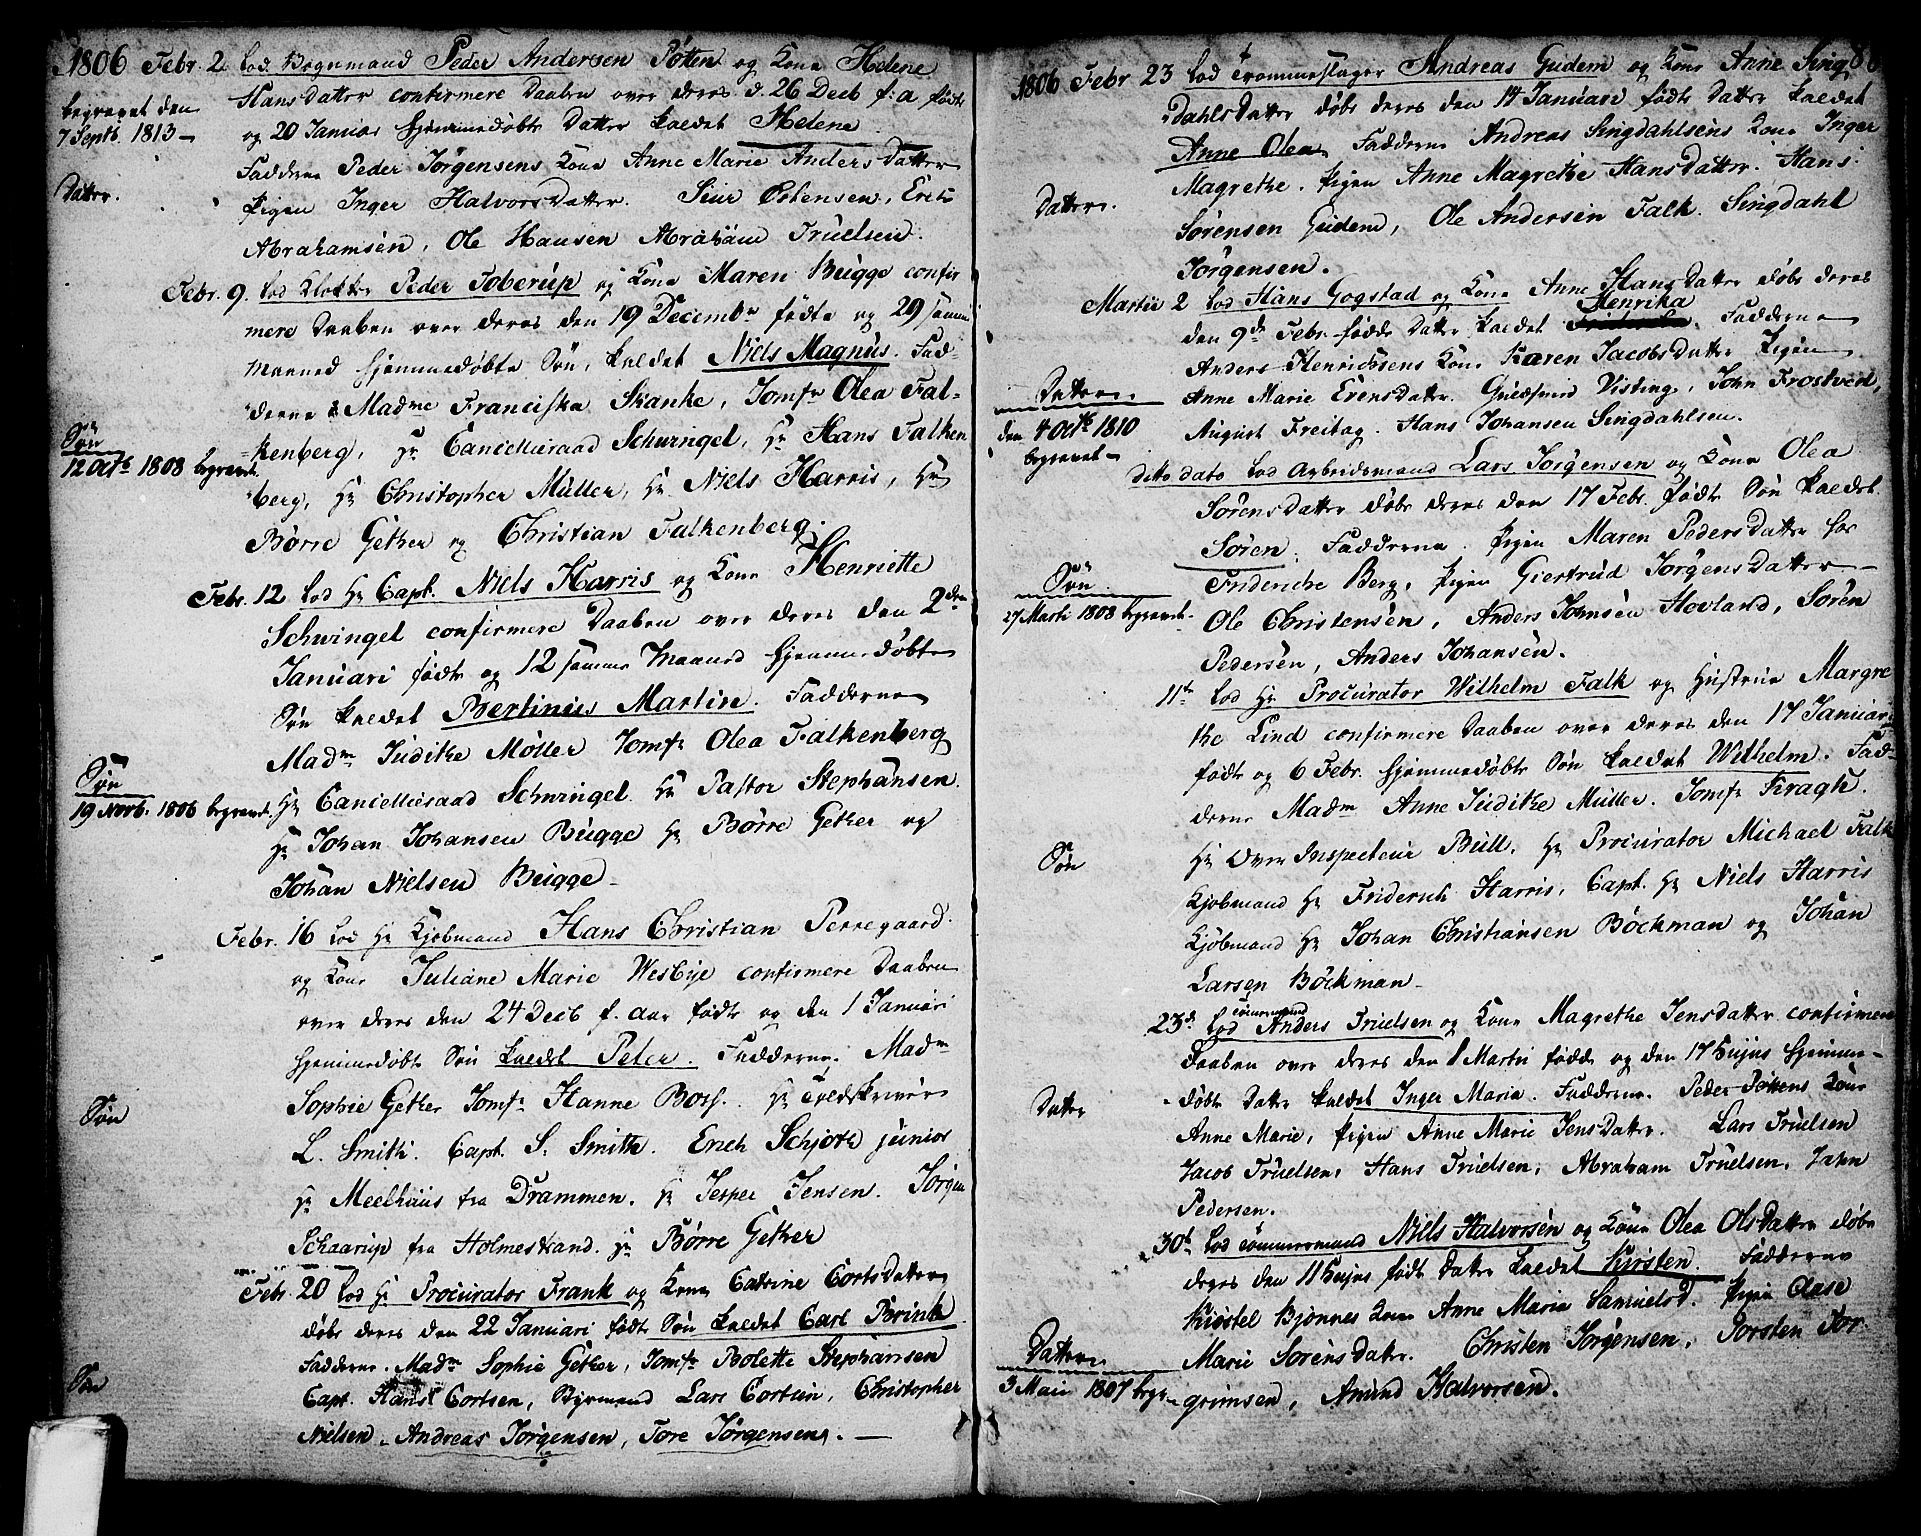 1806 Febr. 2 lod Bøgsmand Peder Andersen Potten og Kone Helene
Hansdatter confirmere Daaben over deres d. 26 Decb f: a fødte
og 20 Januar hjemmedøbte Datter kaldet Helene
Fadderne Peder Jørgensens Kone Anne Marie Andersdatter
Pigen Inger Halvorsdatter. Siur Ostensen, Erich
Abrahamsen, Ole Hansen Abraham Truelsen.
begravet den
7 Septb. 1813 –
Datter.
Febr. 9. lod Klokker Peder Toberup og Kone Maren Bugge confir
mere Daaben over deres den 19 Decembr fødte og 29 samme
maaned hjemmedøbte Søn, kaldet Niels Magnus. Fad-
derne Madme Franciska Skanke, Jomfr Olea Fal-
kenberg, Hr Cancelliraad Schwingel, Hr Hans Falken
berg, Hr Christopher Müller, Hr Niels Harris, Hr
Børre Gether og Christian Falkenberg.
Søn
12 Octb 1808 begravet.
Febr. 12 lod Hr Capt. Niels Harris og Kone Henriette
Schwingel confirmere Daaben over deres den 2den
Januari født og 12 samme Maaned hjemmedøbte
Søn kaldet Bertinius Martin. Fadderne
Madm Judithe Möller Jomfr Olea Falkenberg
Hr Cancelliraad Schwingel. Hr Pastor Stephansen.
Hr Johan Johansen Bugge Hr Børre Gether og
Johan Nielsen Bugge –
Søn
19 Novb. 1806 begravet.
Febr. 16 lod Hr Kjøbmand Hans Christian Perregaard.
og Kone Juliane Marie Wesbye confirmere Daaben
over deres den 24 Decb f. aar født og den 1 Januari
hjemmedøbt Søn kaldet Peter. Fadderne, Madm
Sophie Gether Jomfr Hanne Boss. Hr Toldskriver
L. Smith. Capt. S. Smith. Erich Schjøth junior
Hr Meelhuus fra Drammen. Hr Jesper Jensen. Jørgen
Schaarup fra Holmestrand. Hr Børre Gether
Søn
Febr. 20 lod Hr Procurator Frank og Kone Catrine Cortsdatter
døbe deres den 22 Januari født Søn kaldet Carl Brink
Fadderne. Madm Sophie Gether, Jomfr Bolette Stephansen
Capt. Hans Cortsen, Styrmand Lars Cortsen, Christopher
Nielsen. Andreas Jørgensen, Tore Jørgensen. –
Søn
1806 Febr 23 lod Trommeslager Andreas Gudem og Kone Anne Sing
dahlsdatter døbe deres den 14 Januari født Datter kaldet
Anne Olea. Fadderne Andreas Singdahlsens Kone Inger
Magrethe. Pigen Anne Magrethe Hansdatter. Hans
Sørensen Gudem, Ole Andersen Falk. Singdahl
Jørgensen.
Datter.
Martii 2 lod Hans Gogstad og Kone Anne Hansdatter døbe deres
Henrika
den 9de Febr. fødde Datter kaldet. Fadderne
Anders Henrichsens Kone Karen Jacobsdatter Pigen
Anne Marie Erensdatter. Guldsmed Visting, John Frostved,
August Freitag. Hans Johansen Singdahlsen.
Datter
den 4 Octb 1810
begravet –
ditto dato lod Arbeidsmand Lars Jørgensen og Kone Olea
Sørensdatter døbe deres den 17 Febr. født Søn kaldet
Søren. Fadderne. Pigen Maren Pedersdatter hos
Friderche Berg, Pigen Giertrud Jørgensdatter –
Ole Christensen, Anders Johnsen Hovland, Søren
Pedersen, Anders Johansen.
Søn
27 Marti 1808 begravet.
11te lod Hr Procurator Wilhelm Falk og Hustrue Margre
the Lind confirmere Daaben over deres den 17 Januar
født og 6 Febr. hjemmedøbt Søn kaldet Wilhelm. Fad-
derne Madm Anne Judithe Müller. Jomfr Kragh.
Hr Over Inspecteur Bull, Hr Procurator Michael Falk
Kjøbmand Hr Friderich Harris, Capt. Hr Niels Harris
Kjøbmand Hr Johan Christiansen Böckman og Johan
Larsen Böckman –
Søn
Tømmermand
23d. lod Anders Truelsen og Kone Magrethe Jensdatter confirmere
Daaben over deres den 1 Martii fødde og den 17 hujus hjemme-
døbte Datter kaldet Inger Maria. Fadderne. Peder Pottens Kone
Anne Marie, Pigen Anne Marie Jensdatter. Lars Truelsen
Jacob Truelsen, Hans Truelsen, Abraham Truelsen, Jahn
Pedersen.
Datter
30t lod Tømmermand Niels Halvorsen og Kone Olea Olsdatter døbe
deres den 11 hujus født Datter kaldet Kirsten. Fadderne
Kirstel Bjønnes Kone Anne Maria Samuelsd. Pigen Aase
Marie Sørensdatter. Christen Jørgensen, Torsten Tor
grimsen, Amund Halvorsen.
Datter
3 Maii 1807 begr.